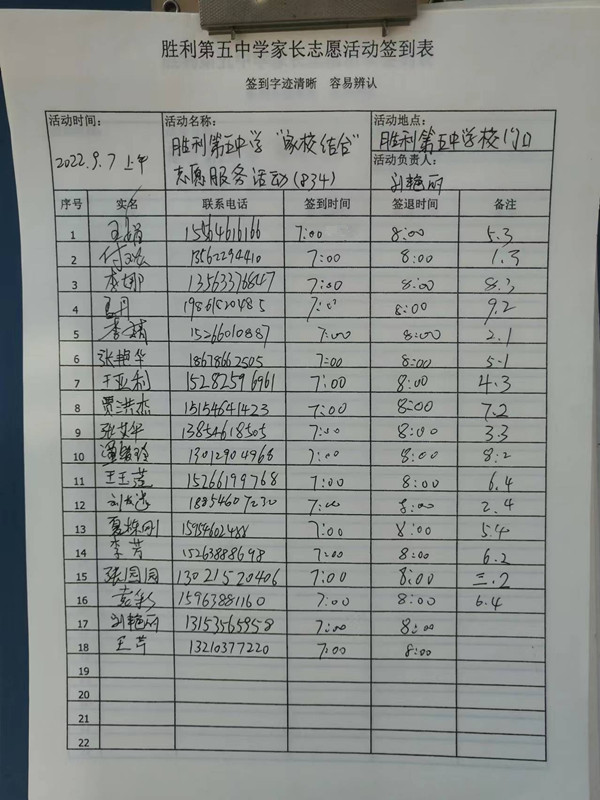 胜利第五中学家长志愿活动签到表
签到字迹清晰 容易辨认
活动时间： 活动名称： 活动地点：
2022.9.7 上午 胜利第五中学“家校结合” 胜利第五中学校门口
志愿服务活动(834) 活动负责人：
刘艳丽
序号 实名 联系电话 签到时间 签退时间 备注
1 王娟 15564616166 7:00 8:00 5.3
2 13562294410 7:00 8:00 1.3
3 李娜 13563376647 7:00 8:00 8.3
4 19861520485 7:00 8:00 9.2
5 李婧 15266010887 7:00 8:00 2.1
6 张艳华 18678662505 7:00 8:00 5.1
7 王亚利 15282596961 7:00 8:00 4.3
8 贾洪杰 15154641423 7:00 8:00 7.2
9 张艾华 13854618505 7:00 8:00 3.3
10 13012904968 7:00 8:00 8.2
11 王玉莲 15266199768 7:00 8:00 6.4
12 18854607230 7:00 8:00 2.4
13 15954602488 7:00 8:00 5.4
14 李芳 15263888698 7:00 8:00 6.2
15 张园园 13021520406 7:00 8:00 三.2
16 袁彩 15963881160 7:00 8:00 6.4
17 刘艳丽 13153565958 7:00 8:00
18 王芹 13210377220 7:00 8:00
19
20
21
22